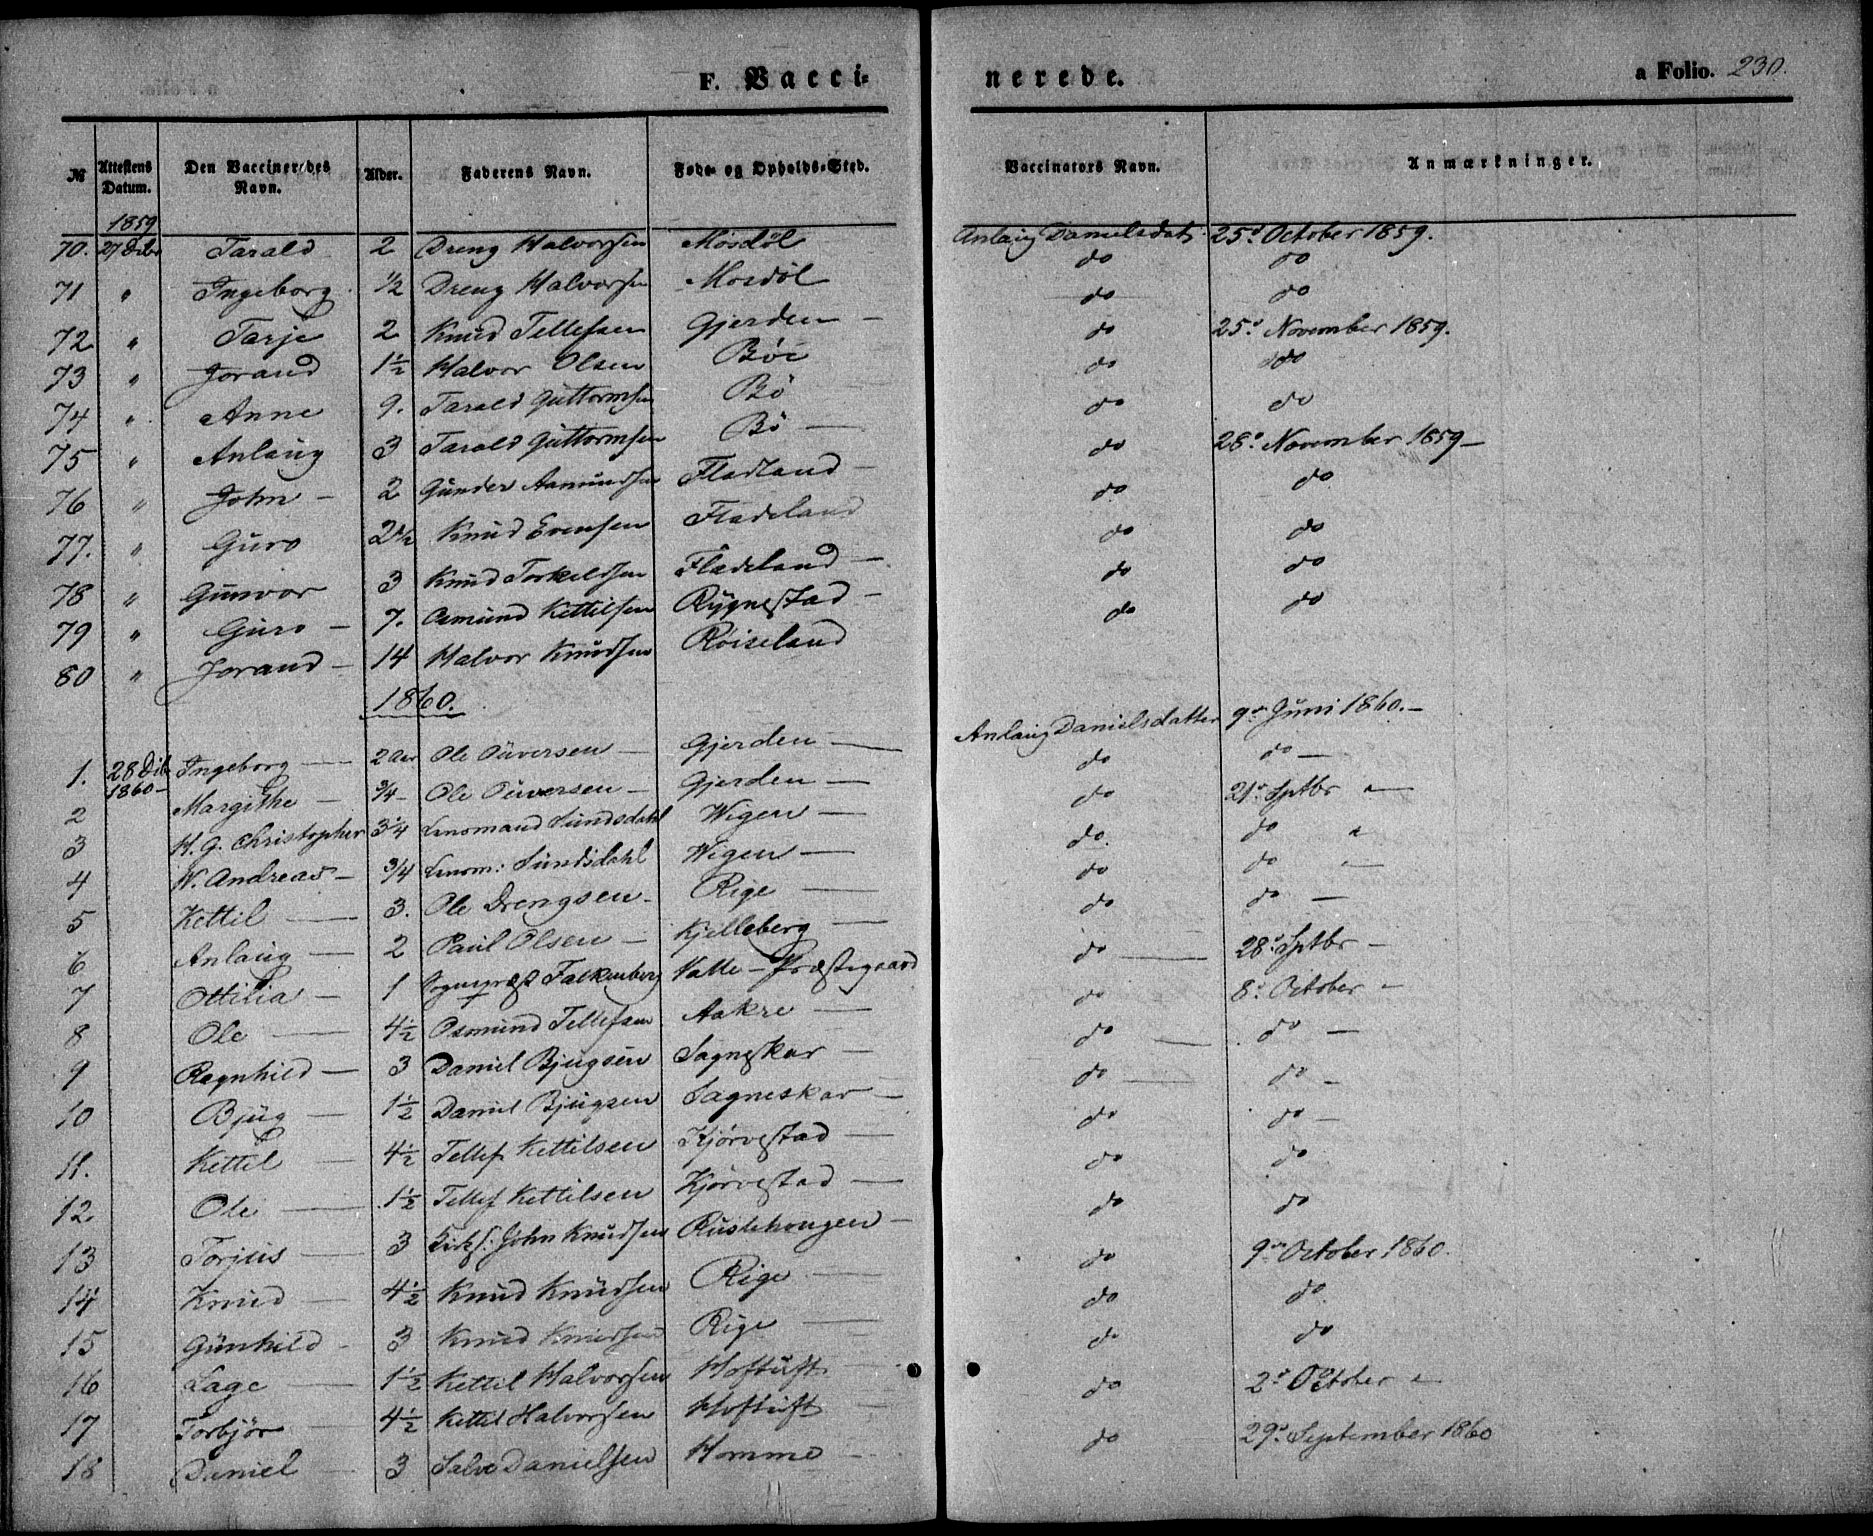 F. Vacci-
nerede.
a Folio. 230.
№ | Attestens Datum. | Den Vaccineredes Navn. | Alder. | Faderens Navn. | Føde- og Opholds-Sted. | Vaccinators Navn. | Anmærkninger.
1859
70. | 27 Dcbr | Tarald | 2 | Dreng Halvorsen | Mosdøl | Anlaug Danielsdat: | 25d October 1859.
71 | " | Ingeborg | 1/2 | Dreng Halvorsen | Mosdøl | do | do
72 | " | Tarje | 2 | Knud Tellefsen | Gjerden — | do | do
73 | " | Jorand | 1½ | Halvor Olsen | Bøe | do | 25d November 1859.
74 | " | Anne | 9. | Tarald Guttormsen | Bø | do | do
75 | " | Anlaug | 3 | Tarald Guttormsen | Bø — | do | do
76 | " | John — | 2 | Gunder Aamundsen | Fladland — | do | 28d November 1859 —
77. | " | Guro | 2½ | Knud Evensen | Fladeland | do | do
78 | " | Gunvor | 3 | Knud Torkeldsen | Fladeland — | do | do
79 | " | Guro — | 7. | Osmund Kettilsen | Rygnestad — | do | do
80 | " | Jorand — | 14 | Halvor Knudsen | Røiseland | do | do
1860.
1. | 28 Dcb 1860 — | Ingeborg — | 2 Aar | Ole Ouversen — | Gjerden — | Anlaug Danielsdatter | 9de Juni 1860. —
2 | Margithe — | 3/4 — | Ole Ouversen — | Gjerden — | do | do —
3 | H. G. Christopher | 3¼ | Lensmand Sundsdahl | Wigen — | do | 21d Sptbr " —
4 | W. Andreas — | 3/4 | Lensm: Sundsdahl | Wigen — | do. | do "
5 | Kettil — | 3. | Ole Drengsen — | Rige — | do | do " —
6 | Anlaug — | 2 | Paul Olsen — | Kjelleberg — | do | do —
7 | Ottilia — | 1 | Sognepræst Falkenberg | Valle - Præstegaard | do — | 28d Sptbr —
8 | Ole — | 4½ | Osmund Tellefsen | Aakre — | do | 8d October —
9 | Ragnhild — | 3 | Daniel Bjugsen | Sagneskar — | do — | do —
10 | Bjug — | 1½ | Daniel Bjugsen | Sagneskar — | do — | do —
11. | Kettel — | 4½ | Tellef Kettilsen | Kjørvestad — | do | do —
12. | Ole — | 1½ | Tellef Kettilsen | Kjørvestad — | do | do
13 | Torjus — | 3 | Kirks: John Knudsen | Rustehougen — | do | do
14 | Knud — | 4½ | Knud Knudsen | Rige — | do | 9de October 1860.
15 | Gunhild — | 3 | Knud Knudsen | Rige — | do | do
16 | Lage — | 1½ | Kettil Halvorsen | Hoftuft | do | do
17 | Torbjør — | 4½ | Kettil Halvorsen | Hoftuft | do | 2d October " —
18 | Daniel — | 3 | Salve Danielsen | Homme — | do | 29d September 1860